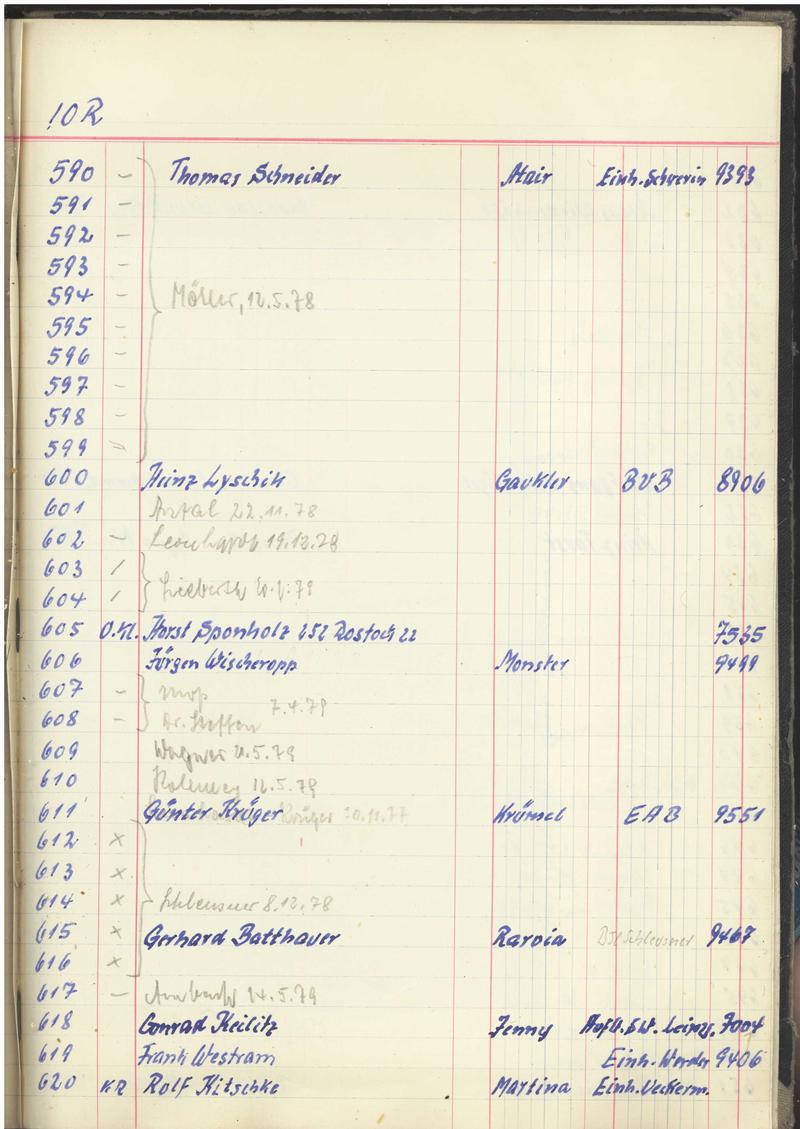 10 R
590 – Thomas Schneider Atair Einh. Schwerin 9393
591 –
592 –
593 –
594 – Möller, 12.5.78
595 –
596 –
597 –
598 –
599 –
600 Heinz Lyschik Gaukler BVB 8906
601 22.11.78
602 – Leonhardt 19.12.78
603 /
604 /
605 O.Kl. Horst Sponholz 252 Rostock 22 7535
606 Jürgen Wischeropp Monster 9499
607 –
7.4.79
608 – Dr. Steffen
609 Wagner 5.79
610 12.5.79
611 Günter Krüger Krümel EAB 9551
612 x
613 x
614 x 8.12.78
615 x Gerhard Batthauer Raroia Schleusner 9467
616 x
617 – 14.5.79
618 Conrad Keilitz Jenny Leipz. 7004
619 Frank Westram Einh. Werder 9406
620 KR Rolf Kitschke Martina Einh. Ueckerm.